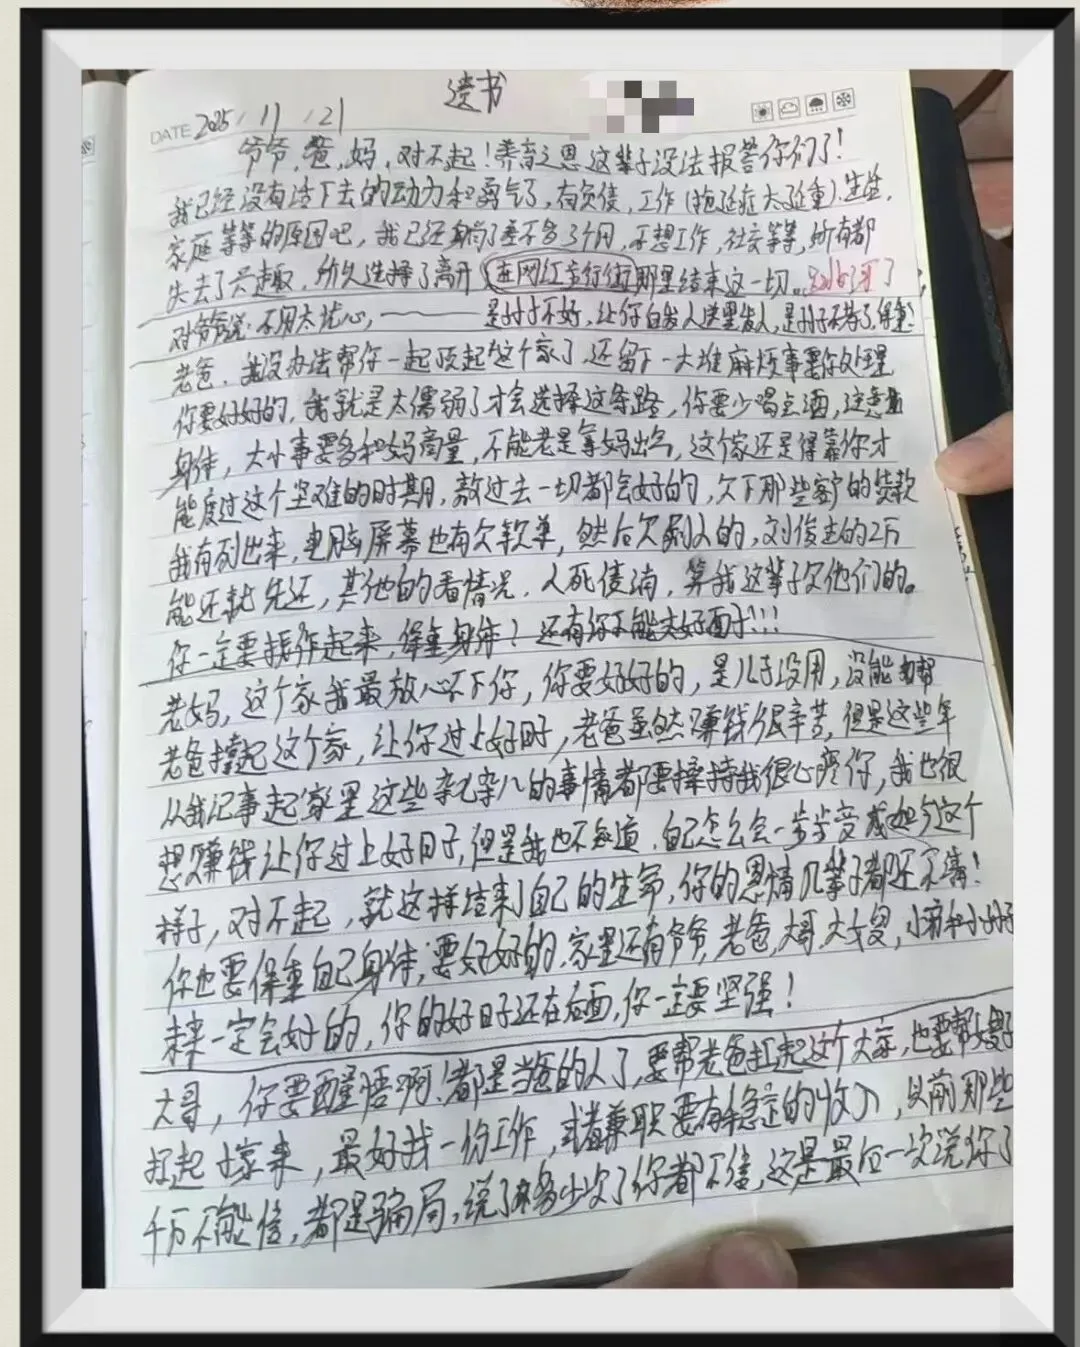 遗书
DATE 2025 / 11 / 21
爷爷,爸,妈,对不起!养育之恩这辈子没法报答你们了!
我已经没有活下去的动力和勇气了,有负债,工作(拖延症太延重).生活,
家庭等等的原因吧,我已经躺了差不多3个月,不想工作,社交等等,所有都
失去了兴趣,所久选择了离开(在网红步行街)那里结束这一切。
对爷爷说:不用太忧心,———是孙子不好,让你白发人送黑发人,是孙子不孝了,保重!
老爸,我没办法帮你一起顶起这个家了,还留下一大堆麻烦事要你处理
你要好好的,我就是太儒弱了才会选择这条路,你要少喝点酒,注意
身体,大小事要多和妈商量,不能老是拿妈出气,这个家还是得靠你才
能度过这个坚难的时期,熬过去一切都会好的,欠下那些客户的货款
我有列出来,电脑屏幕也有欠款单,然后欠别人的,刘俊 的2万
能还就先还,其他的看情况,人死债消,算我这辈子欠他们的。
你一定要振作起来,保重身体?还有你不能太好面子!!!
老妈,这个家我最放心不下你,你要好好的,是儿子没用,没能 帮
老爸撑起这个家,让你过上好日子,老爸虽然赚钱很辛苦,但是这些年
从我记事起家里这些杂七杂八的事情都要操持我很心疼你,我也很
想赚钱让你过上好日子,但是我也不知道,自己怎么会一步步变成如今这个
样子,对不起,就这样结束了自己的生命,你的恩情几辈子都还不清!
你也要保重自己身体,要好好的,家里还有爷爷,老爸,大哥,大嫂,小 和小
未来一定会好的,你的好日子还在后面,你一定要坚强!
大哥,你要醒悟啊!都是当爸的人了,要帮老爸扛起这个大家,也要帮大嫂
扛起 家来,最好找一份工作,或者兼职要有稳定的收入,以前那些
千万不能信,都是骗局,说了 多少次了你都不信,这是最后一次说你了